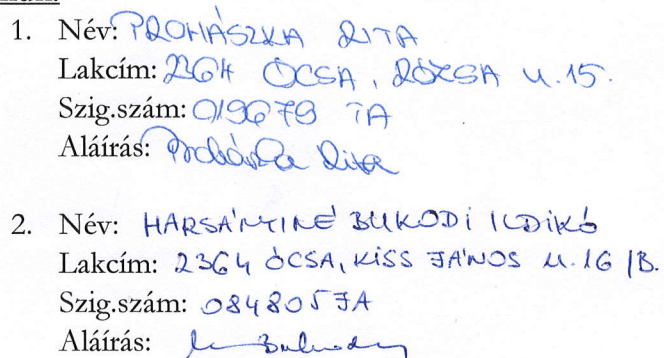 1. Név: PROHÁSZKA RITA
Lakcím: 2364 ÓCSA, RÓZSA u. 15.
Szig.szám: 019679 TA
Aláírás: Prohászka Rita
2. Név: HARSÁNYINÉ BUKODI ILDIKÓ
Lakcím: 2364 ÓCSA, KISS JÁNOS u. 16/B.
Szig.szám: 084805 JA
Aláírás: